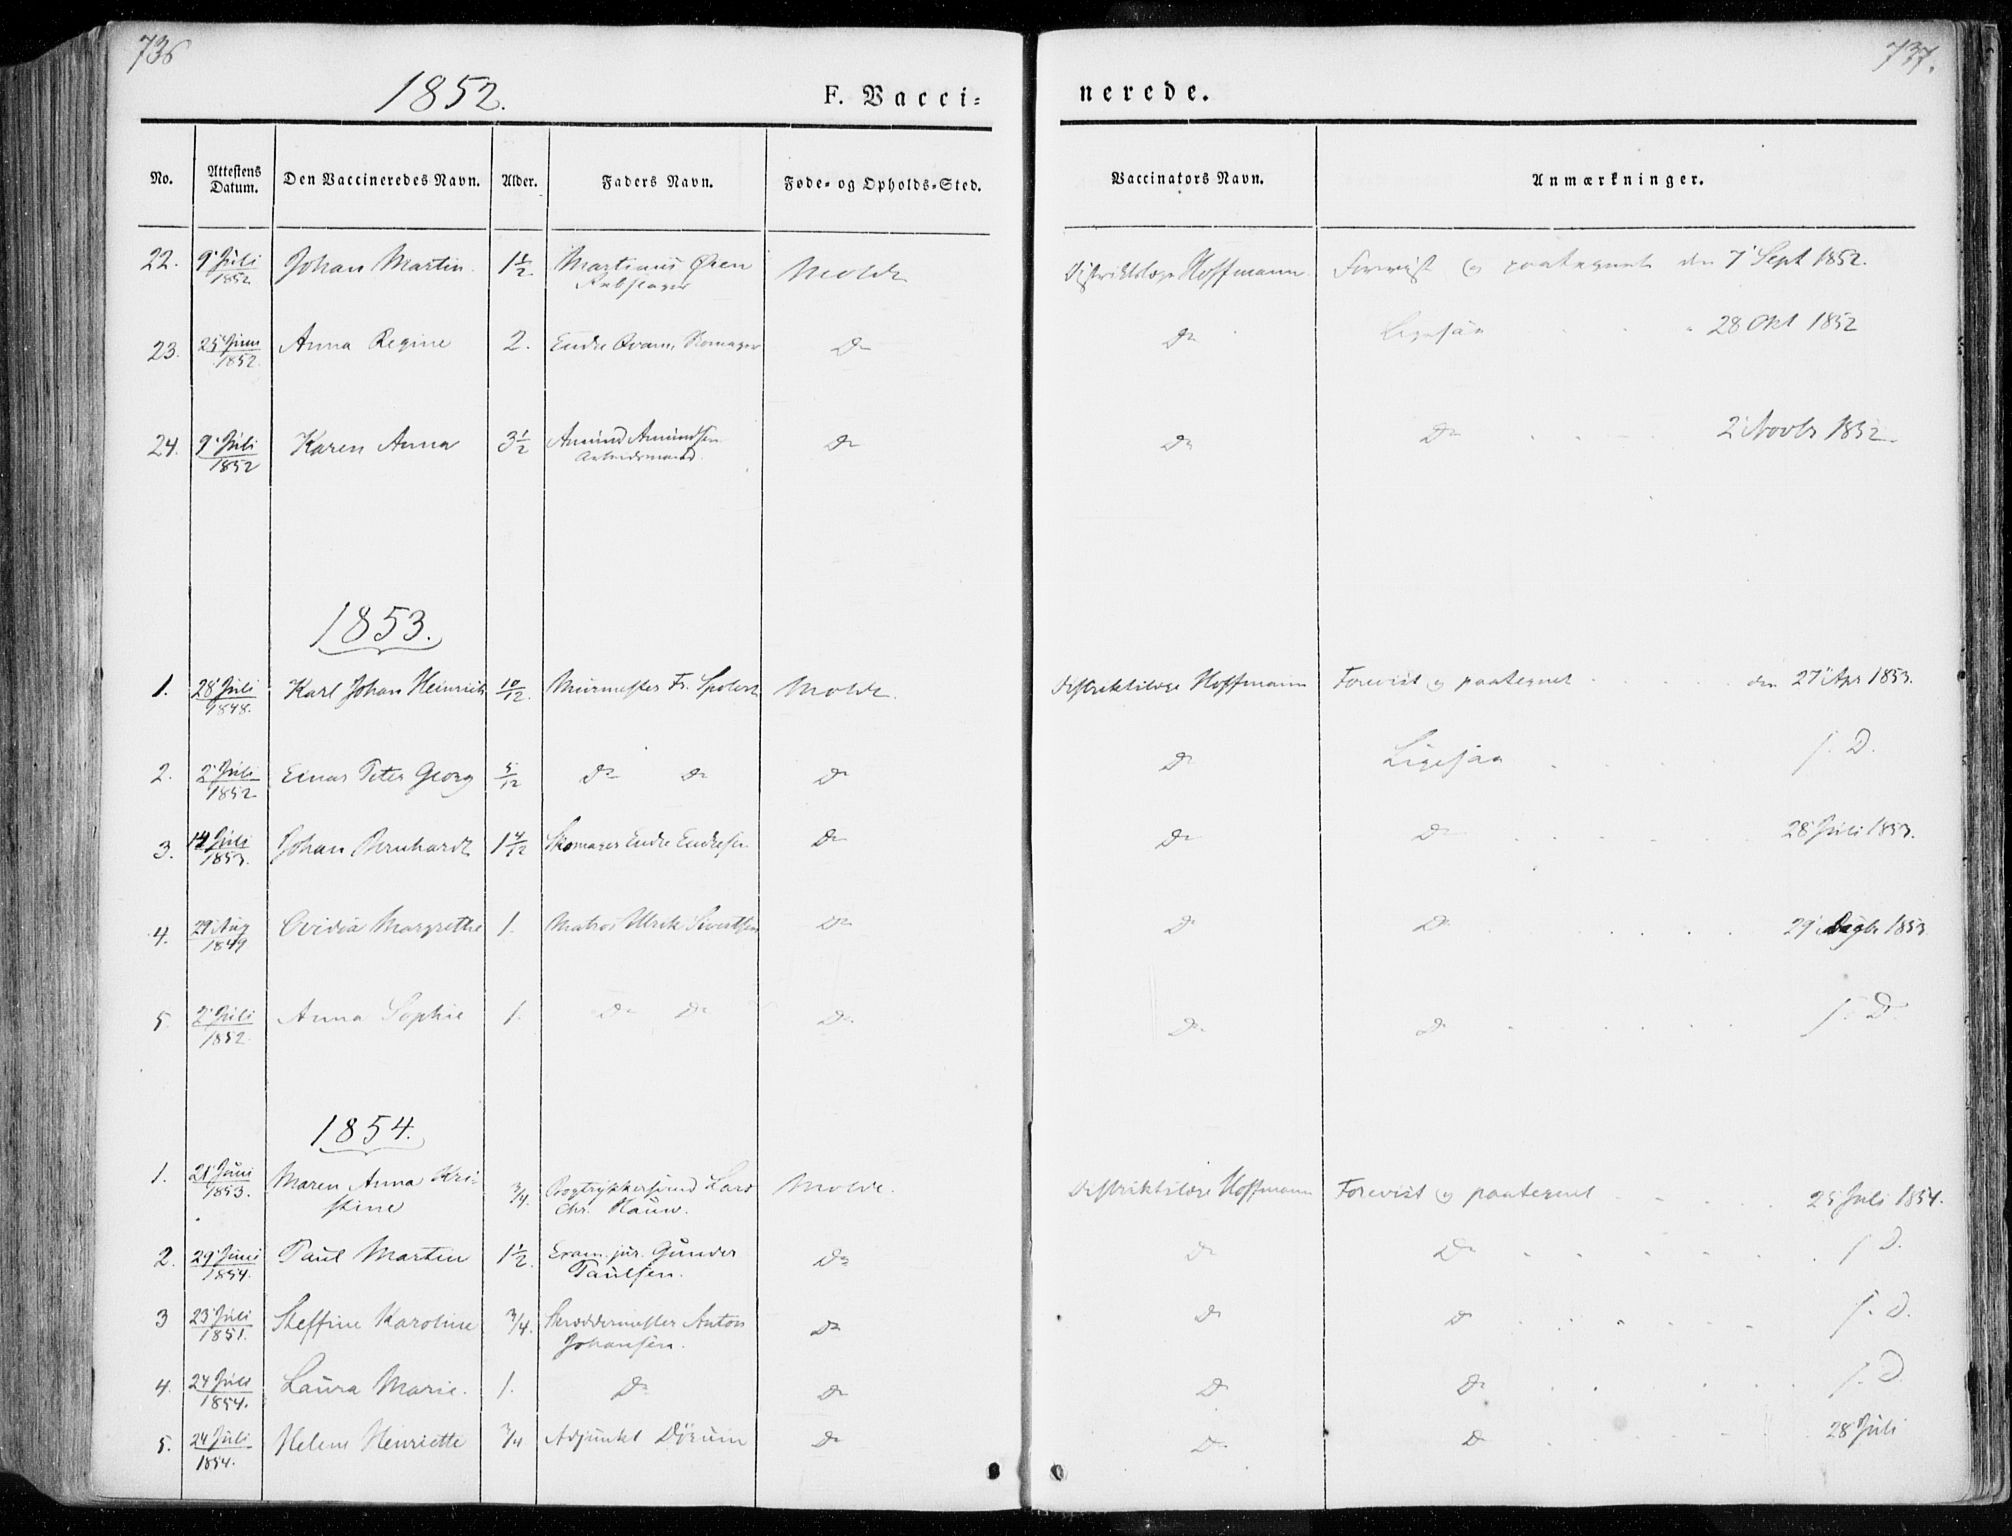 736
737.
1852.
F. Vacci=
nerede.
No.
Attestens Datum.
Den Vaccineredes Navn.
Alder.
Faders Navn.
Føde- og Opholds-Sted.
Vaccinators Navn.
Anmærkninger.
22. 9' Juli 1852 Johan Martin 1 1/2. Martinus Øren Molde Distriktslæge Hoffmann Forevist og paategnet den 7' Sept 1852.
23. 25' Juni 1852. Anna Regine 2. Endre Skomager Do Do Ligesaa 28 Okt 1852
24. 9' Juli 1852 Karen Anna 3 1/2 Amund Amundsen Arbeidsmand. Do Do Do 2' Novbr 1852.
1853.
1. 28' Juli 1848. Karl Johan Heinrich 10/12. Murmester Fr. Molde. Distriktslæge Hoffmann Forevist og paategnet den 27' Apr 1853.
2. 2' Juli 1852 Einar Peter Georg 5/12 Do Do Do Do Ligesaa s. D.
3. 14' Juli 1853. Johan Bernhardt 1 4/12 Skomager Endre Endresen Do Do Do 28' Juli 1853.
4. 29' Aug 1849 Ovidia Margrethe 1. Matros Ulrik Sivertsen Do Do Do 29' 1853
5. 2' Juli 1852. Anna Sophie 1. Do Do Do Do Do s. D.
1854.
1. 21' Juni 1853. Maren Anna Kri-
stine 3/4. Bogtrykkersvend Lars
Chr. Hauw. Molde. Distriktslæge Hoffmann Forevist og paategnet 25' Juli 1854.
2. 29' Juni 1854. Paul Martin 1 1/2. Exam. jur. Gunder
Paulsen. Do Do Do s. D.
3 23' Juli 1851. Steffine Karoline 3/4. Skreddermester Anton
Johansen. Do Do Do s. D.
4. 24' Juli 1854. Laura Marie. 1. Do Do Do Do s. D.
5. 24' Juli 1854. Helene Henriette 3/4 Adjunkt Dørum Do Do Do 28' Juli